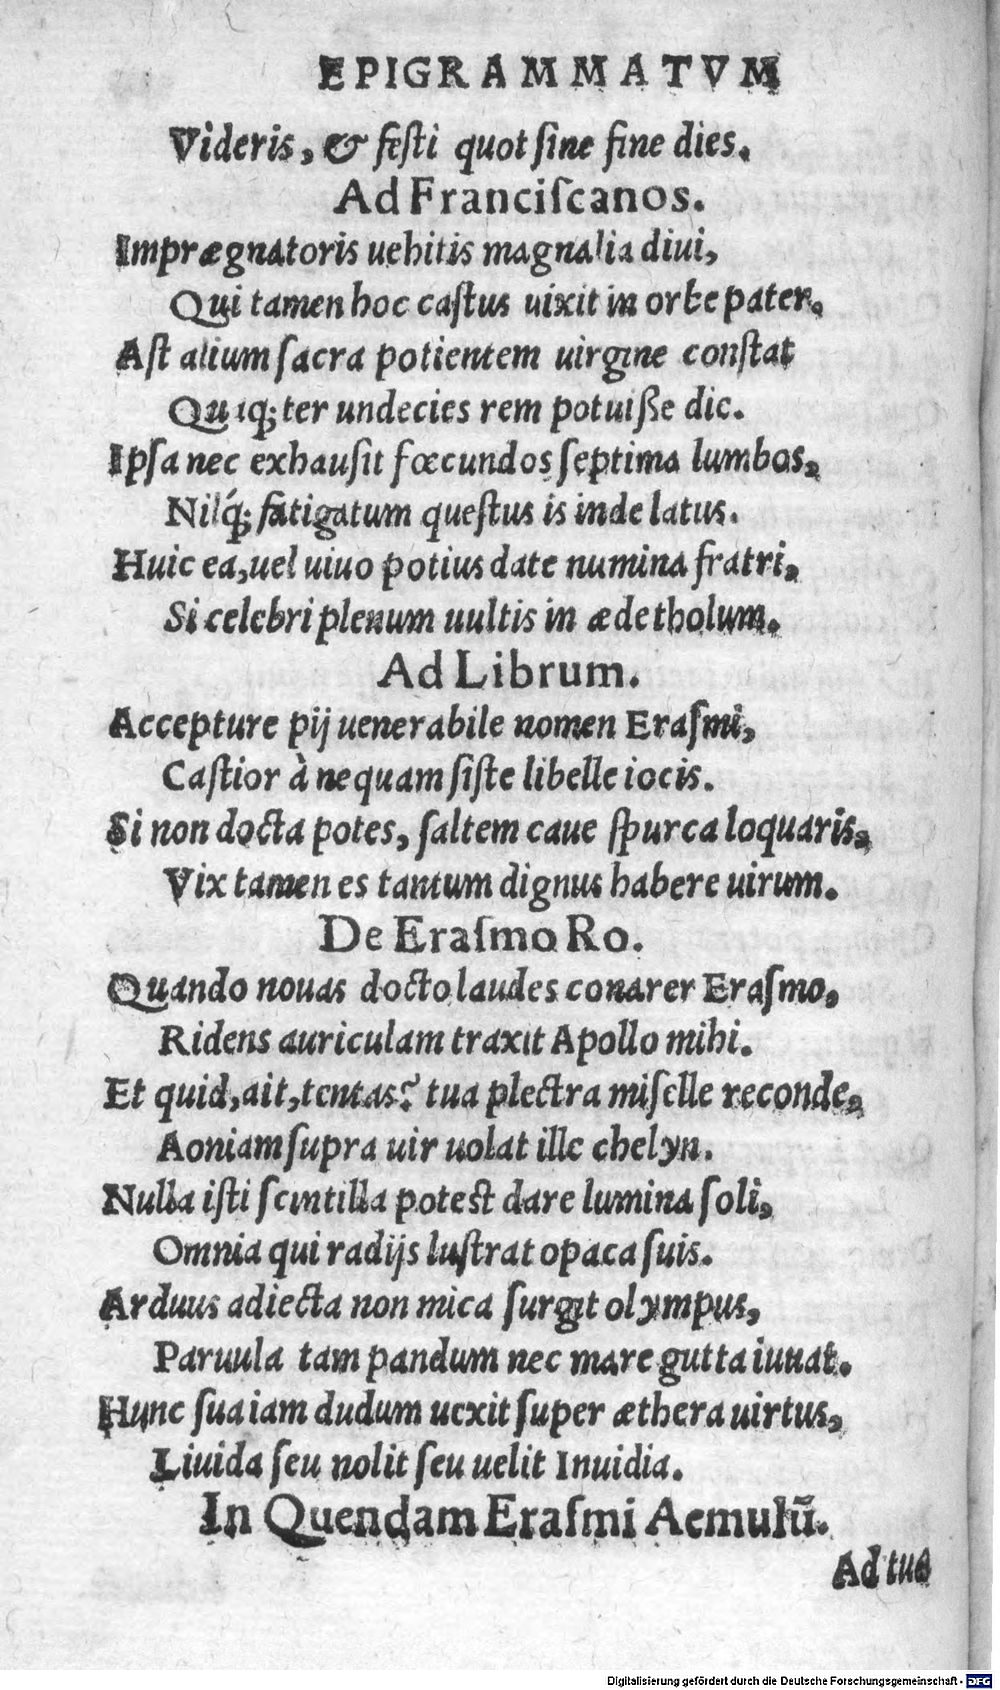 EPIGRAMMATVM
Videris, & festi quot sine fine dies.
Ad Franciſcanos.
Imprægnatoris uehitis magnalia diui,
Qui tamen hoc caſtus uixit in orbe pater.
Aſt alium ſacra potientem uirgine conſtat
Quiq; ter undecies rem potuiſſe dic.
Ipſa nec exhauſit fœcundos ſeptima lumbos,
Nilq́; fatigatum queſtus is inde latus.
Huic ea, uel uiuo potius date numina fratri,
Si celebri plenum uultis in æde tholum.
Ad Librum.
Accepture pij uenerabile nomen Eraſmi,
Caſtior à nequam ſiſte libelle iocis.
Si non docta potes, ſaltem caue ſpurca loquaris,
Vix tamen es tantum dignus habere uirum.
De Eraſmo Ro.
Quando nouas docto laudes conarer Eraſmo,
Ridens auriculam traxit Apollo mihi.
Et quid, ait, tentas? tua plectra miſelle reconde,
Aoniam ſupra uir uolat ille chelyn.
Nulla iſti ſcintilla poteſt dare lumina ſoli,
Omnia qui radijs luſtrat opaca ſuis.
Arduus adiecta non mica ſurgit olympus,
Paruula tam pandum nec mare gutta iuuat.
Hunc ſua iam dudum uexit ſuper æthera uirtus,
Liuida ſeu nolit ſeu uelit Inuidia.
In Quendam Eraſmi Aemulū.
Ad tuo
Digitalisierung gefördert durch die Deutsche Forschungsgemeinschaft - DFG